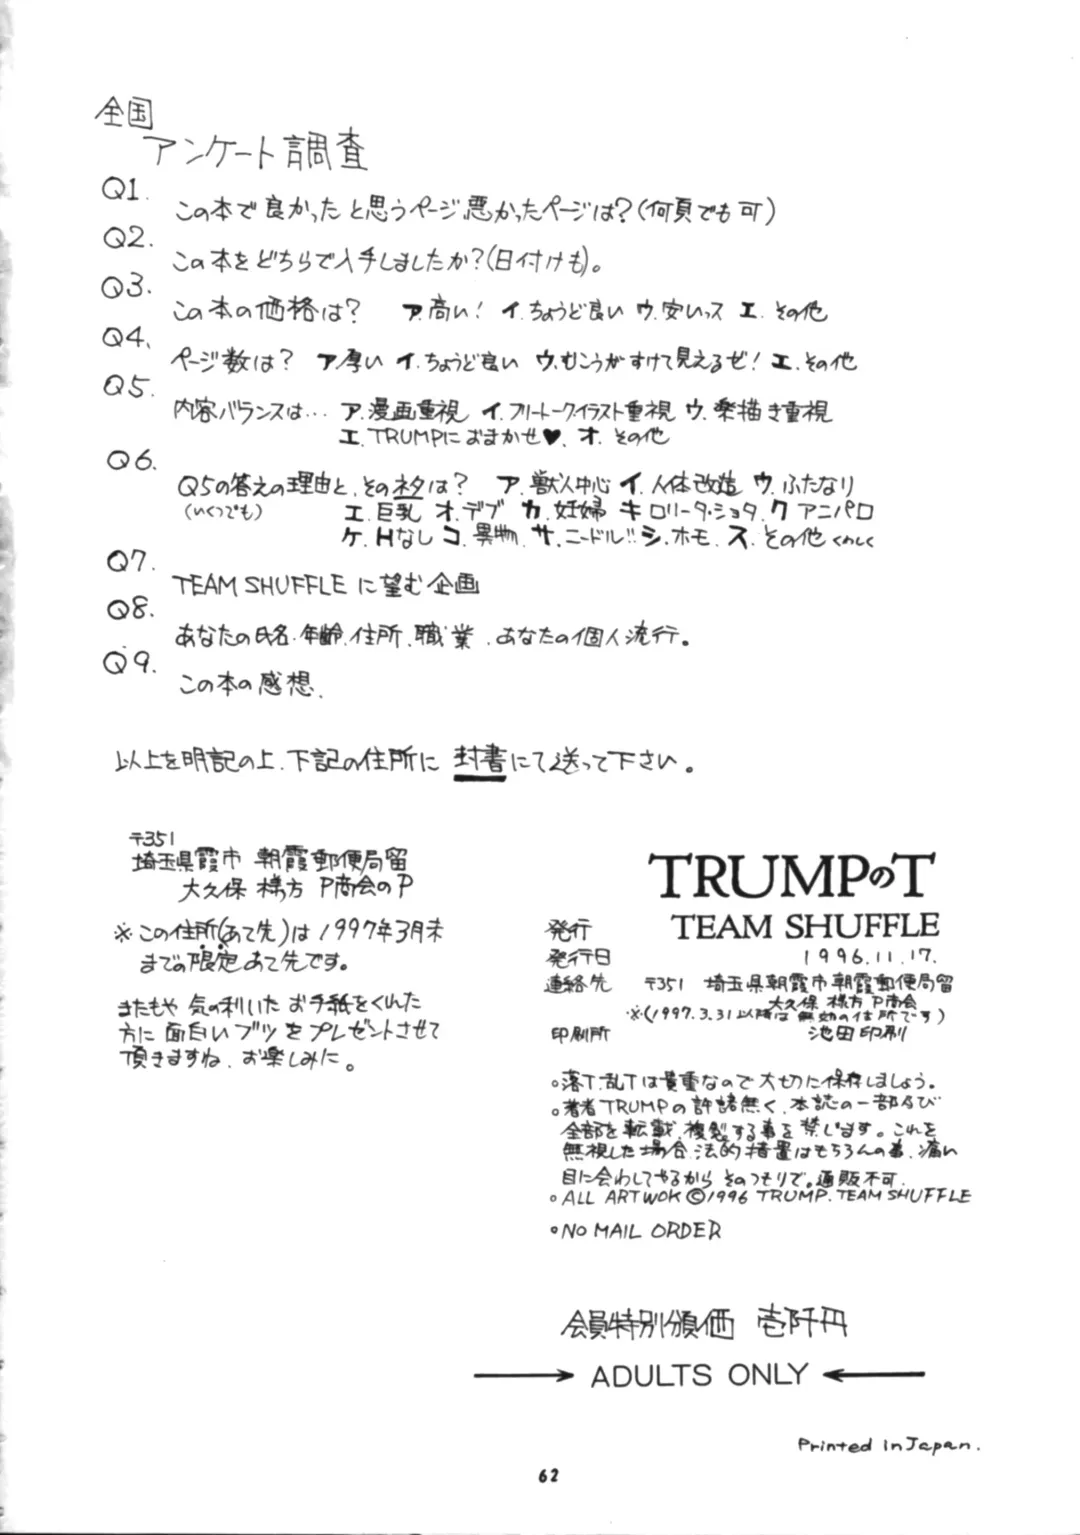 全国
アンケート調査
Q1.
この本で良かったと思うページ、悪かったページは?(何頁でも可)
Q2.
この本をどちらで入手しましたか?(日付けも)。
Q3.
この本の価格は? ア.高い! イ.ちょうど良い ウ.安いっス エ.その他
Q4、
ページ数は? ア.厚い イ.ちょうど良い ウ.むこうがすけて見えるぜ! エ.その他
Q5.
内容バランスは… ア.漫画重視 イ.フリートークイラスト重視 ウ.楽描き重視
エ.TRUMPにおまかせ♥. オ.その他
Q6.
Q5の答えの理由と、そのネタは? ア.獣人中心 イ.人体改造 ウ.ふたなり
(いくつでも) エ.巨乳 オ.デブ カ.妊婦 キ ロリータ・ショタ、ク アニパロ
ケ.Hなし コ.異物. サ.ニードル!! シ.ホモ. ス.その他 くわしく
Q7.
TEAM SHUFFLE に望む企画
Q8.
あなたの氏名・年齢、住所、職業、あなたの個人流行。
Q9.
この本の感想.
以上を明記の上、下記の住所に 封書にて送って下さい。
〒351
埼玉県霞市 朝霞郵便局留
大久保 様方 P商会のP
※この住所(あて先)は1997年3月末
までの限定あて先です。
またもや 気の利いた お手紙をくれた
方に 面白いブツをプレゼントさせて
頂きますね、お楽しみに。
TRUMPのT
発行 TEAM SHUFFLE
発行日 1996.11.17.
連絡先 〒351 埼玉県朝霞市朝霞郵便局留
大久保 様方 P商会
※(1997.3.31以降は無効の住所です)
印刷所 池田印刷
○落T.乱Tは貴重なので大切に保存しましょう。
○著者TRUMPの許諾無く、本誌の一部及び
全部を転載、複製する事を禁じます。これを
無視した場合、法的措置はもちろんの事、痛い
目に会わしてやるからそのつもりで。通販不可.
○ALL ARTWOK ©1996 TRUMP. TEAM SHUFFLE
○NO MAIL ORDER
会員特別頒価 壱阡円
→ ADULTS ONLY ←
Printed in Japan.
62